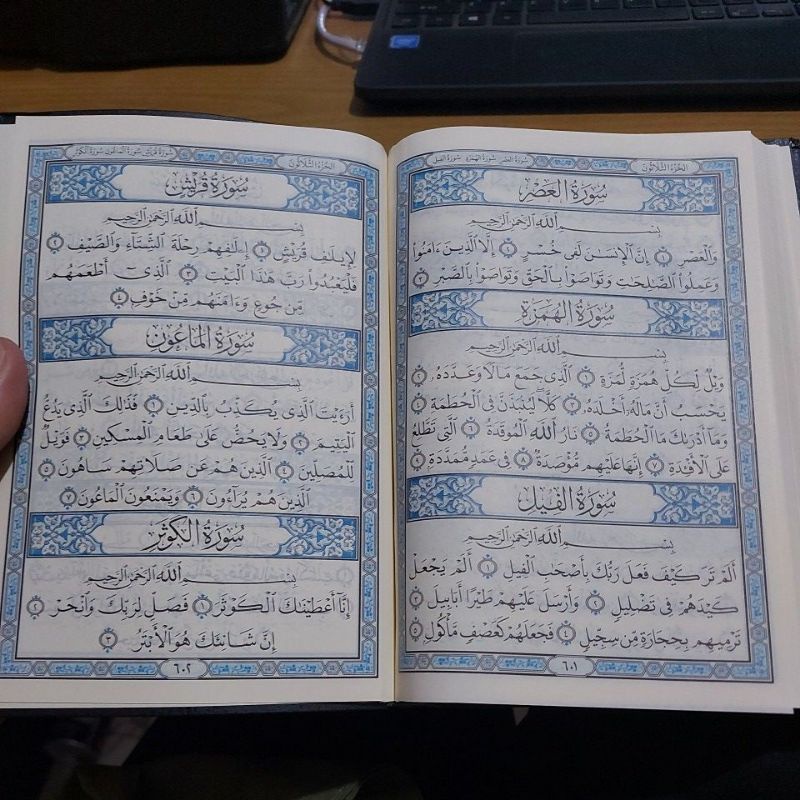 الجزء الثلاثون
سورة العصر سورة الهمزة سورة الفيل
سُورَةُ العَصْرِ
بِسْمِ ٱللَّهِ ٱلرَّحْمَٰنِ ٱلرَّحِيمِ
وَٱلْعَصْرِ ١ إِنَّ ٱلْإِنسَٰنَ لَفِى خُسْرٍ ٢ إِلَّا ٱلَّذِينَ ءَامَنُوا۟
وَعَمِلُوا۟ ٱلصَّٰلِحَٰتِ وَتَوَاصَوْا۟ بِٱلْحَقِّ وَتَوَاصَوْا۟ بِٱلصَّبْرِ ٣
سُورَةُ الهُمَزَةِ
بِسْمِ ٱللَّهِ ٱلرَّحْمَٰنِ ٱلرَّحِيمِ
وَيْلٌ لِّكُلِّ هُمَزَةٍ لُّمَزَةٍ ١ ٱلَّذِى جَمَعَ مَالًا وَعَدَّدَهُۥ ٢
يَحْسَبُ أَنَّ مَالَهُۥٓ أَخْلَدَهُۥ ٣ كَلَّا لَيُنۢبَذَنَّ فِى ٱلْحُطَمَةِ ٤
وَمَآ أَدْرَىٰكَ مَا ٱلْحُطَمَةُ ٥ نَارُ ٱللَّهِ ٱلْمُوقَدَةُ ٦ ٱلَّتِى تَطَّلِعُ
عَلَى ٱلْأَفْـِٔدَةِ ٧ إِنَّهَا عَلَيْهِم مُّؤْصَدَةٌ ٨ فِى عَمَدٍ مُّمَدَّدَةٍۭ ٩
سُورَةُ الفِيلِ
بِسْمِ ٱللَّهِ ٱلرَّحْمَٰنِ ٱلرَّحِيمِ
أَلَمْ تَرَ كَيْفَ فَعَلَ رَبُّكَ بِأَصْحَٰبِ ٱلْفِيلِ ١ أَلَمْ يَجْعَلْ
كَيْدَهُمْ فِى تَضْلِيلٍ ٢ وَأَرْسَلَ عَلَيْهِمْ طَيْرًا أَبَابِيلَ ٣
تَرْمِيهِم بِحِجَارَةٍ مِّن سِجِّيلٍ ٤ فَجَعَلَهُمْ كَعَصْفٍ مَّأْكُولٍۭ ٥
٦٠١
الجزء الثلاثون
سورة قريش سورة الماعون سورة الكوثر
سُورَةُ قُرَيْشٍ
بِسْمِ ٱللَّهِ ٱلرَّحْمَٰنِ ٱلرَّحِيمِ
لِإِيلَٰفِ قُرَيْشٍ ١ إِۦلَٰفِهِمْ رِحْلَةَ ٱلشِّتَآءِ وَٱلصَّيْفِ ٢
فَلْيَعْبُدُوا۟ رَبَّ هَٰذَا ٱلْبَيْتِ ٣ ٱلَّذِىٓ أَطْعَمَهُم
مِّن جُوعٍ وَءَامَنَهُم مِّنْ خَوْفٍۭ ٤
سُورَةُ المَاعُونِ
بِسْمِ ٱللَّهِ ٱلرَّحْمَٰنِ ٱلرَّحِيمِ
أَرَءَيْتَ ٱلَّذِى يُكَذِّبُ بِٱلدِّينِ ١ فَذَٰلِكَ ٱلَّذِى يَدُعُّ
ٱلْيَتِيمَ ٢ وَلَا يَحُضُّ عَلَىٰ طَعَامِ ٱلْمِسْكِينِ ٣ فَوَيْلٌ
لِّلْمُصَلِّينَ ٤ ٱلَّذِينَ هُمْ عَن صَلَاتِهِمْ سَاهُونَ ٥
ٱلَّذِينَ هُمْ يُرَآءُونَ ٦ وَيَمْنَعُونَ ٱلْمَاعُونَ ٧
سُورَةُ الكَوْثَرِ
بِسْمِ ٱللَّهِ ٱلرَّحْمَٰنِ ٱلرَّحِيمِ
إِنَّآ أَعْطَيْنَٰكَ ٱلْكَوْثَرَ ١ فَصَلِّ لِرَبِّكَ وَٱنْحَرْ ٢
إِنَّ شَانِئَكَ هُوَ ٱلْأَبْتَرُ ٣
٦٠٢